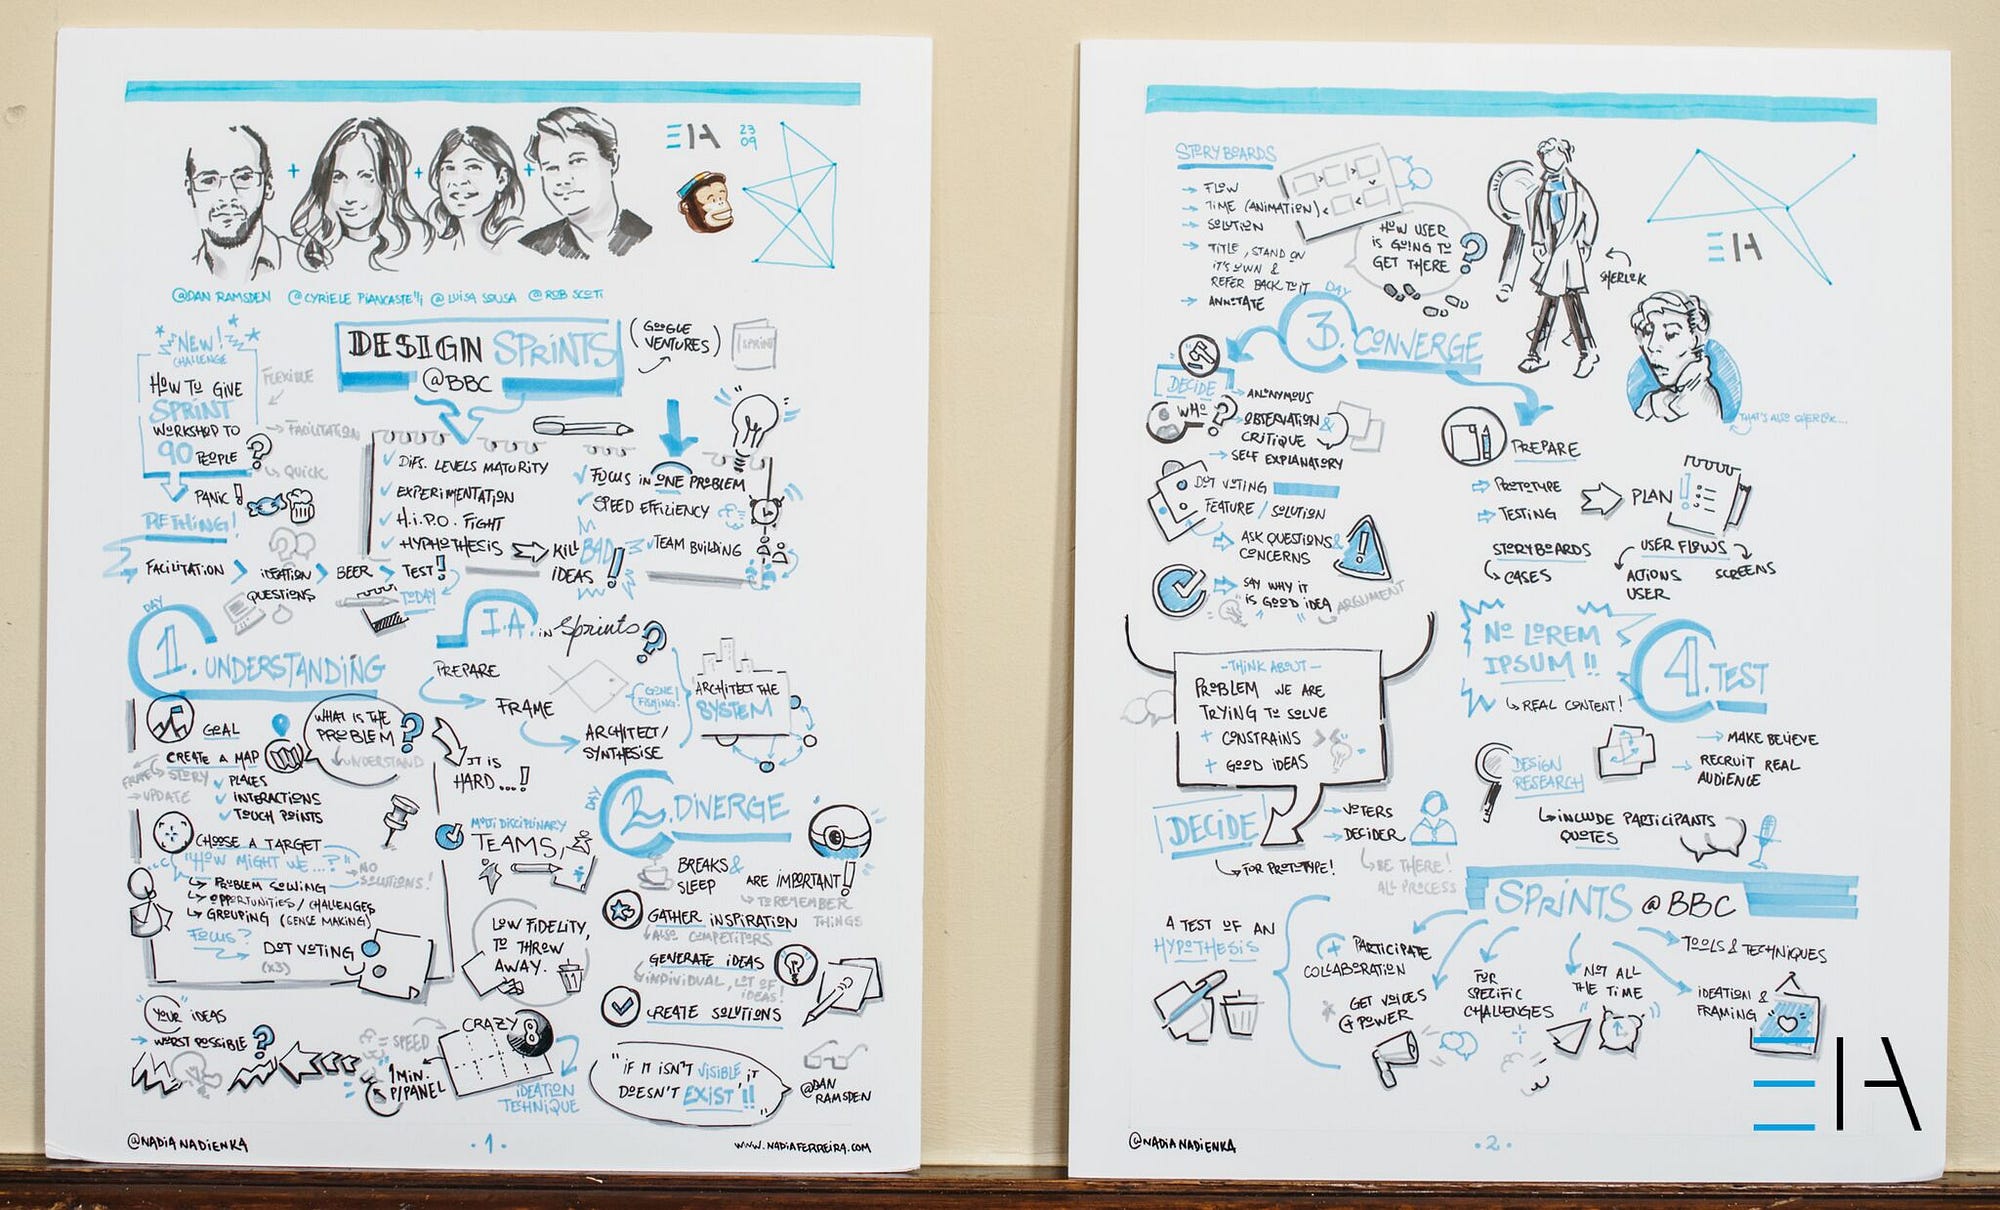 EIA
23
09
@DAN RAMSDEN @CYRIELE PIANCASTELLI @LUISA SOUSA @ROB SCOTT
NEW!
CHALLENGE
HOW TO GIVE
SPRINT
WORKSHOP TO
90 PEOPLE ?
FLEXIBLE
FACILITATION
QUICK
PANIC!
RETHING!
FACILITATION > IDEATION > BEER > TEST!
QUESTIONS
TODAY
DESIGN SPRINTS
@BBC
(GOOGLE
VENTURES)
SPRINT
DIFS. LEVELS MATURITY
EXPERIMENTATION
H.I.P.O. FIGHT
HYPHOTHESIS
KILL BAD
IDEAS !
FOCUS IN ONE PROBLEM
SPEED EFFICIENCY
TEAM BUILDING
DAY
1. UNDERSTANDING
GOAL
WHAT IS THE
PROBLEM ?
UNDERSTAND
CREATE A MAP
FRAME STORY
UPDATE
PLACES
INTERACTIONS
TOUCH POINTS
CHOOSE A TARGET
"HOW MIGHT WE...?"
NO
SOLUTIONS!
PROBLEM SOLVING
OPPORTUNITIES / CHALLENGES
GROUPING (CENCE MAKING)
FOCUS?
DOT VOTING
(X3)
IT IS
HARD...!
MULTI DISCIPLINARY
TEAMS,
LOW FIDELITY,
TO THROW
AWAY.
YOUR IDEAS
WORST POSSIBLE ?
= SPEED
1 MIN.
P/PANEL
CRAZY 8
IDEATION
TECHNIQUE
I.A. IN Sprints ?
PREPARE
FRAME
GONE
FISHING!
ARCHITECT/
SYNTHESISE
ARCHITECT THE
SYSTEM
DAY
2. DIVERGE
BREAKS &
SLEEP
ARE IMPORTANT!
TO REMEMBER
THINGS
GATHER INSPIRATION
ALSO COMPETITORS
GENERATE IDEAS
INDIVIDUAL, LOT OF
IDEAS!
CREATE SOLUTIONS
"IF IT ISN'T VISIBLE, IT
DOESN'T EXIST!!"
@DAN
RAMSDEN
@NADIANADIENKA
·1·
WWW.NADIAFERREIRA.COM
STORYBOARDS
FLOW
TIME (ANIMATION)
SOLUTION
TITLE, STAND ON
IT'S OWN &
REFER BACK TO IT
ANNOTATE
HOW USER
IS GOING TO
GET THERE ?
SHERLOK
EIA
THAT'S ALSO SHERLOK...
DAY
3. CONVERGE
DECIDE
WHO ?
ANONYMOUS
OBSERVATION &
CRITIQUE
SELF EXPLANATORY
DOT VOTING
FEATURE / SOLUTION
ASK QUESTIONS &
CONCERNS
SAY WHY IT
IS GOOD IDEA
ARGUMENT
-THINK ABOUT-
PROBLEM WE ARE
TRYING TO SOLVE
+ CONSTRAINS
+ GOOD IDEAS
DECIDE
FOR PROTOTYPE!
VOTERS
DECIDER
BE THERE!
ALL PROCESS
PREPARE
PROTOTYPE
TESTING
PLAN
STORYBOARDS
CASES
USER FLOWS
ACTIONS
USER
SCREENS
NO LOREM
IPSUM !!
REAL CONTENT!
4. TEST
MAKE BELIEVE
RECRUIT REAL
AUDIENCE
DESIGN
RESEARCH
INCLUDE PARTICIPANTS
QUOTES
SPRINTS @ BBC
A TEST OF AN
HYPOTHESIS
+ PARTICIPATE
COLLABORATION
GET VOICES
+ POWER
FOR
SPECIFIC
CHALLENGES
NOT ALL
THE TIME
TOOLS & TECHNIQUES
IDEATION &
FRAMING
@NADIANADIENKA
·2·
EIA